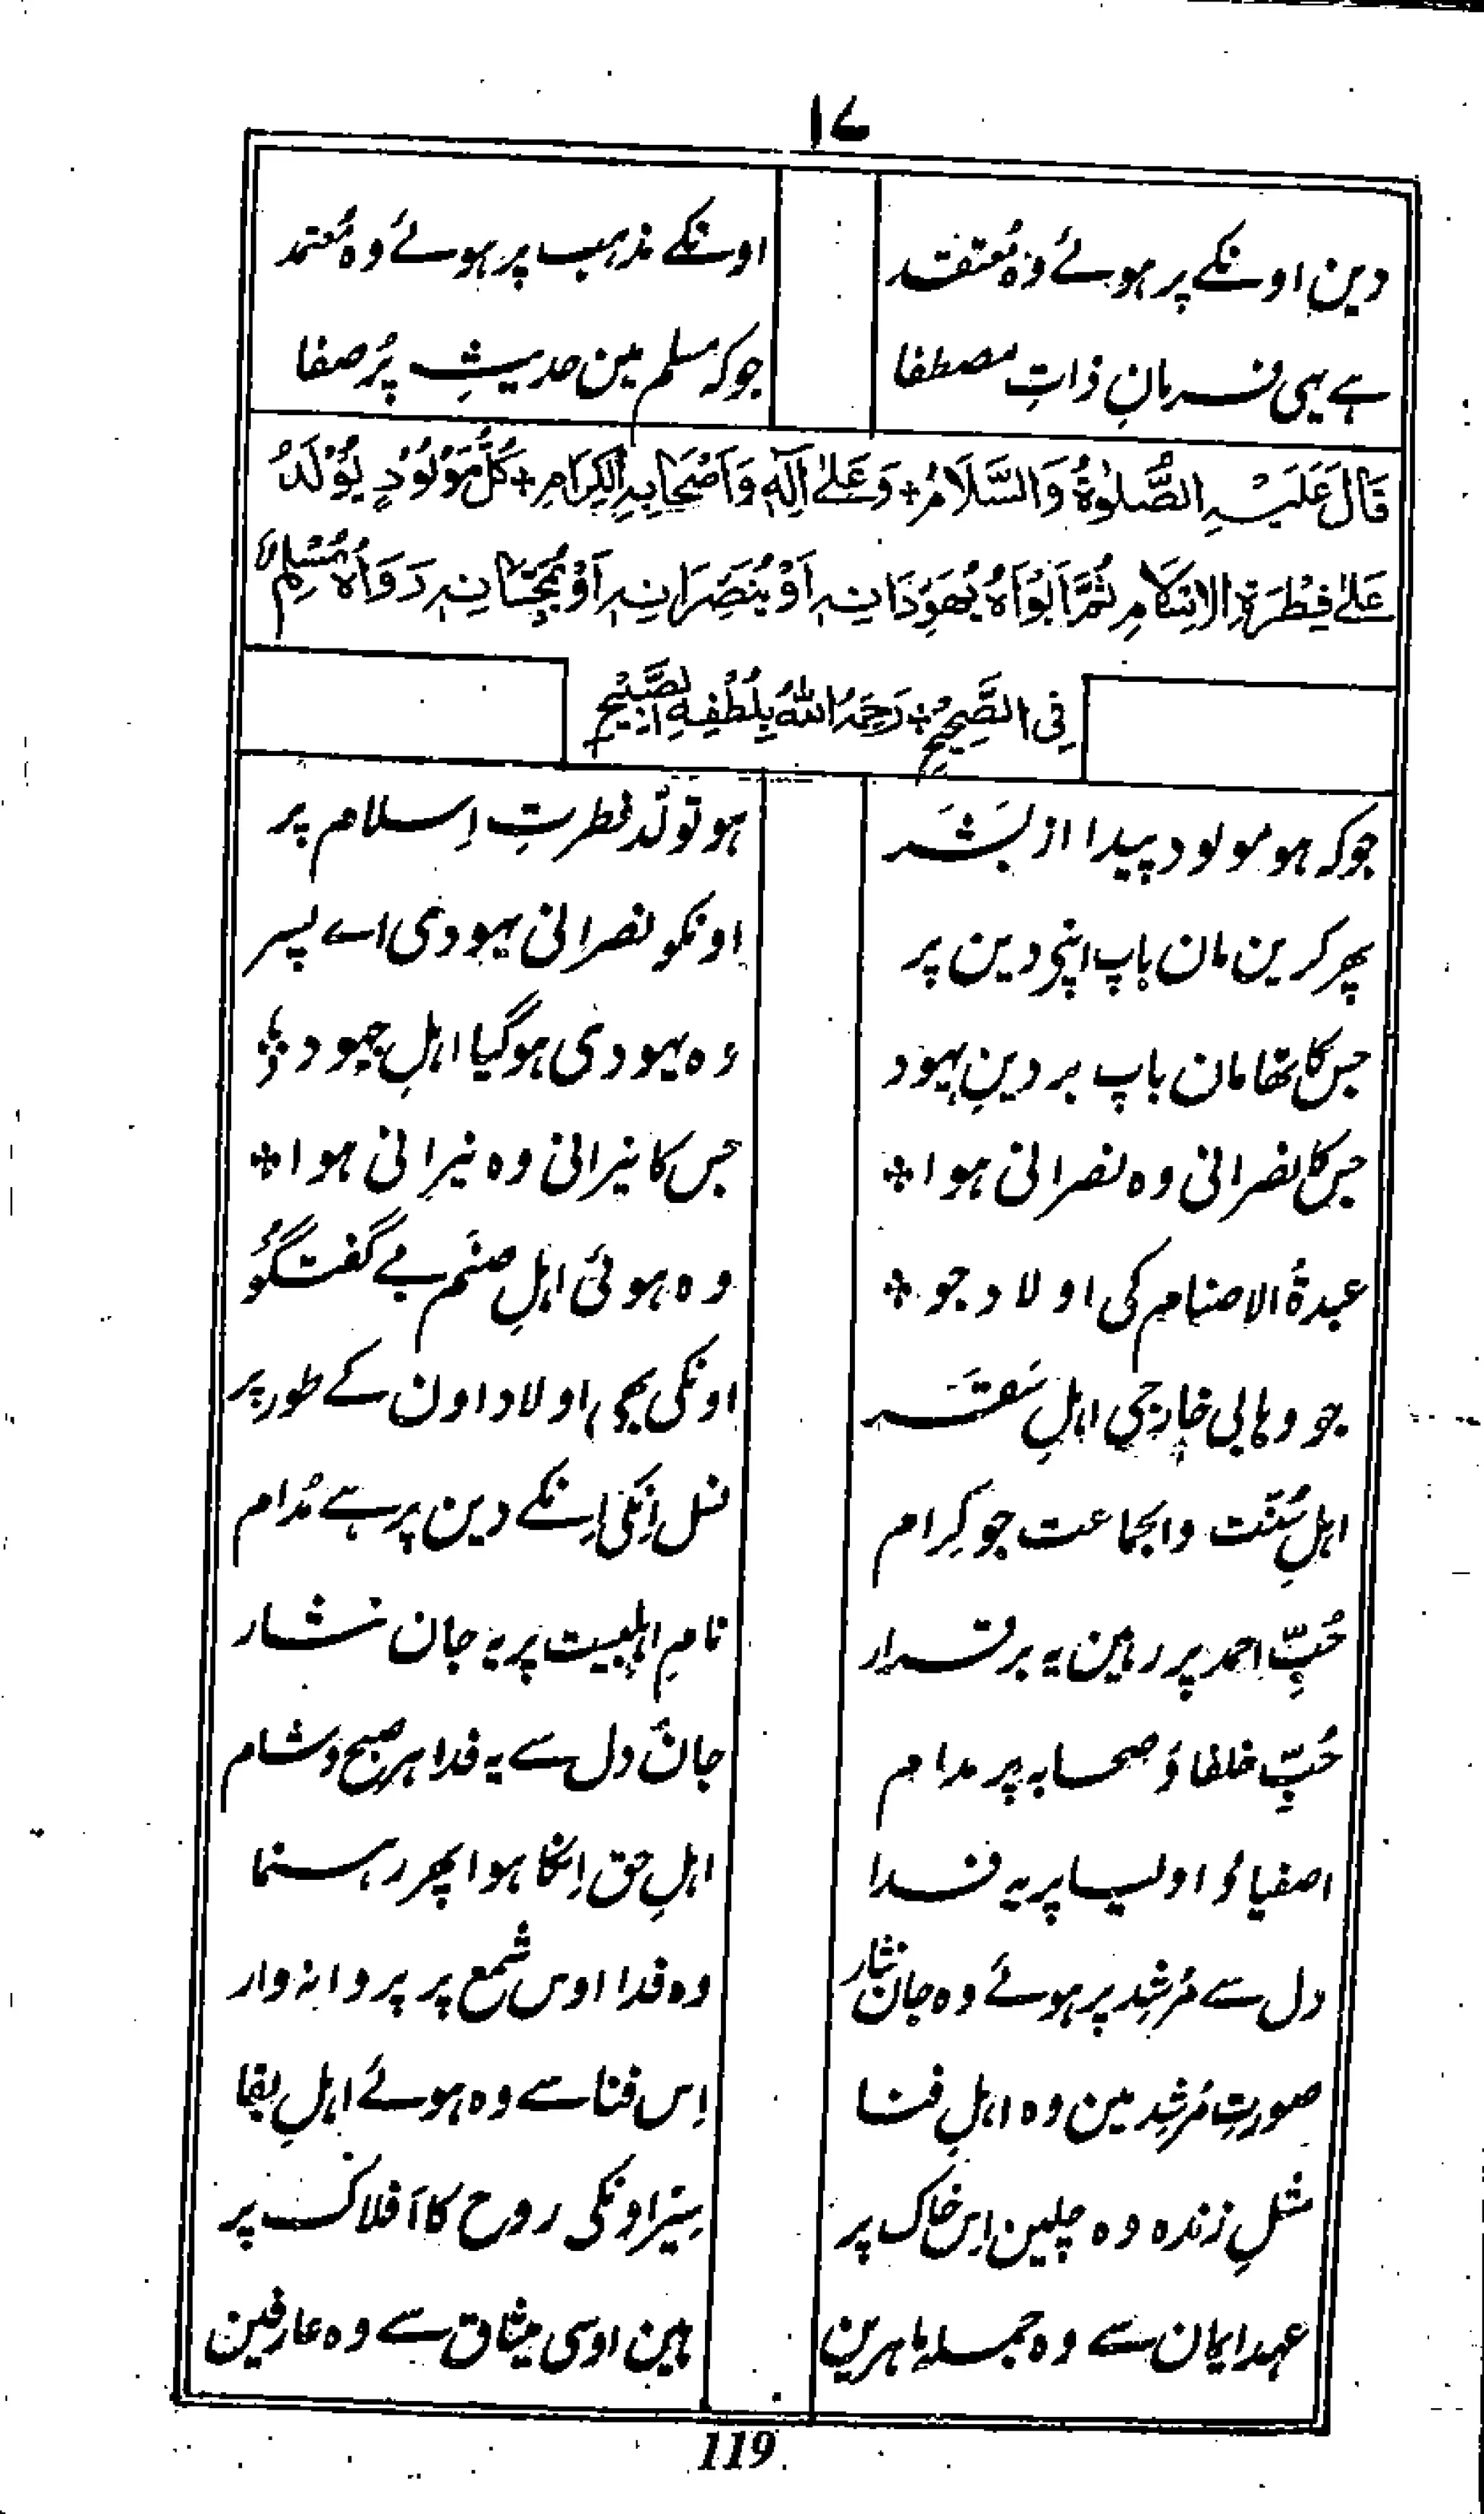 ۱۷
دین اونکے پر ہوئے وہ مُعتقد اونکے مذہب پر ہوئے وہ مُعتمد
ہے یہی فرمانِ ذاتِ مصطفا جو کہ مسلم مین حدیثِ پُر صفا
قَالَ عَلَيْهِ الصَّلوٰةُ وَالسَّلَامُ + وَعَلیٰ اٰلِهٖ وَاَصْحَابِهِ الْكِرَامِ + كُلُّ مَوْلُوْدٍ يُوْلَدُ
عَلیٰ فِطْرَةِ الْاِسْلَامِ ثُمَّ اَبَوَاهُ يُهَوِّدَانِهٖ اَوْ يُنَصِّرَانِهٖ اَوْ يُمَجِّسَانِهٖ رَوَاهُ مُسْلِمٌ
فِى الصَّحِيْحِ + رَحِمَهُ اللّٰهُ بِلُطْفِهِ الصَّبِيْحِ
جو کہ ہو مولود پیدا از بَشَر ہو تولّد فطرتِ اِسلام پر
پھر کرین مان باپ اپنی دین پر اونکو نصرانی یہودی اے پسر
جس کا تھا مان باپ بر دینِ یہود وہ یہودی ہوگیا اہلِ جہود
جس کا نصرانی وہ نصرانی ہوا + جس کا نیرانی وہ نیرانی ہوا +
عبدۃ الاصنام کی اولاد جو + وہ ہوئی اہلِ صنَم بے گفتگو
جو وہابی خارجی اہلِ سَقَر اونکی بھی اولاد اون کے طور پر
اہلِ سُنّت والجماعت جو کِرام نسل اِنکی اِنکے دین پر ہے مُدام
حُبِّ احمد پر رہین یہ برقرار نامِ اہلبیت پر یہ جان نثار
حُبِّ خلفا وُ صحابہ پر مدام جان دل سے یہ فدا ہر صبح و شام
اصفیا وُ اولیا پر یہ فدا اہلِ حق اِنکا ہوا پھر رہنما
دل سے مُرشِد پر ہوئے وہ جان نثار وہ فدا اوس شمع پر پروانہ وار
صورتِ مُرشِد مین وہ اہلِ فنا اِس فنا سے وہ ہوئے اہلِ بقا
مثلِ زندہ وہ چلین اس خاک پر سیَر اونکی روح کا افلاک پر
عہد ایمان سے وہ جملہ ماہرین ہین اوسی میثاق سے وہ عارفین
119